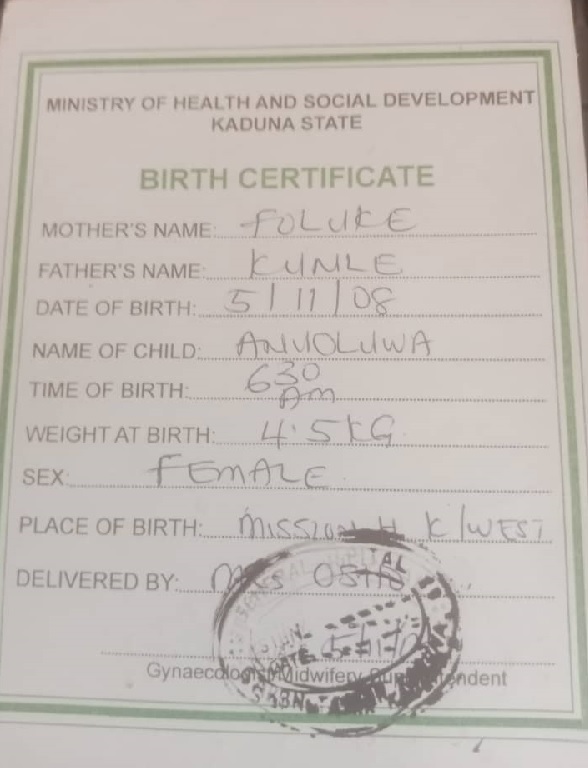 MINISTRY OF HEALTH AND SOCIAL DEVELOPMENT
KADUNA STATE
BIRTH CERTIFICATE
MOTHER'S NAME: FOLUKE
FATHER'S NAME: KUNLE
DATE OF BIRTH: 5/11/08
NAME OF CHILD: ANUOLUWA
TIME OF BIRTH: 630 am
WEIGHT AT BIRTH: 4.5KG
SEX: FEMALE
PLACE OF BIRTH: MISSION H K/WEST
DELIVERED BY: MRS
Gynaecologist/Midwifery Superintendent